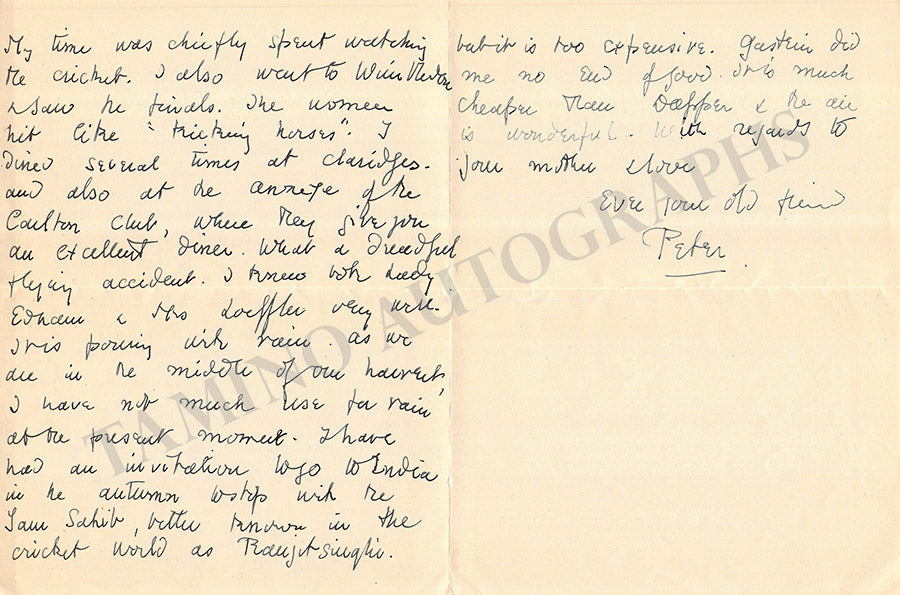 My time was chiefly spent watching
the cricket. I also went to Wimbledon
& saw the finals. The women
hit like "kicking horses". I
dined several times at Claridges.
and also at the annexe of the
Carlton Club, where they give you
an excellent diner. What a dreadful
flying accident. I knew both Lady
Ednam & Mrs Loeffler very well.
It is pouring with rain. As we
are in the middle of our harvest,
I have not much use for rain
at the present moment. I have
had an invitation to go to India
in the autumn to stop with the
Jam Sahib, better known in the
cricket world as Ranjitsinghi.
but it is too expensive. Gastein did
me no end of good. It is much
cheaper than & the air
is wonderful. With regards to
your mother & love
Ever your old friend
Peter
TAMINO AUTOGRAPHS